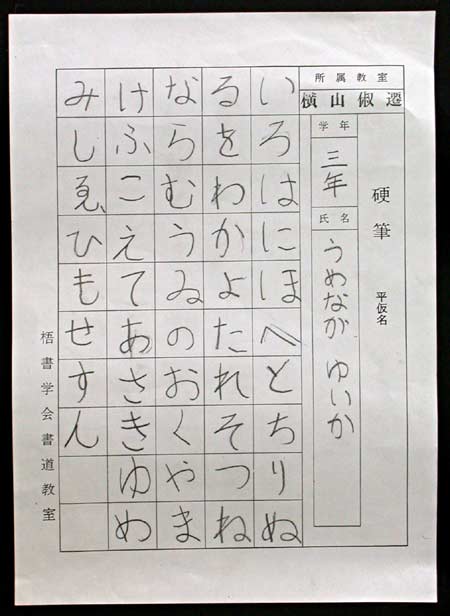 硬筆 平仮名
所属教室
横山俶遷
学年
三年
氏名
うめなが ゆいか
いろはにほへとちりぬ
るをわかよたれそつね
ならむうゐのおくやま
けふこえてあさきゆめ
みしゑひもせすん
梧書学会書道教室